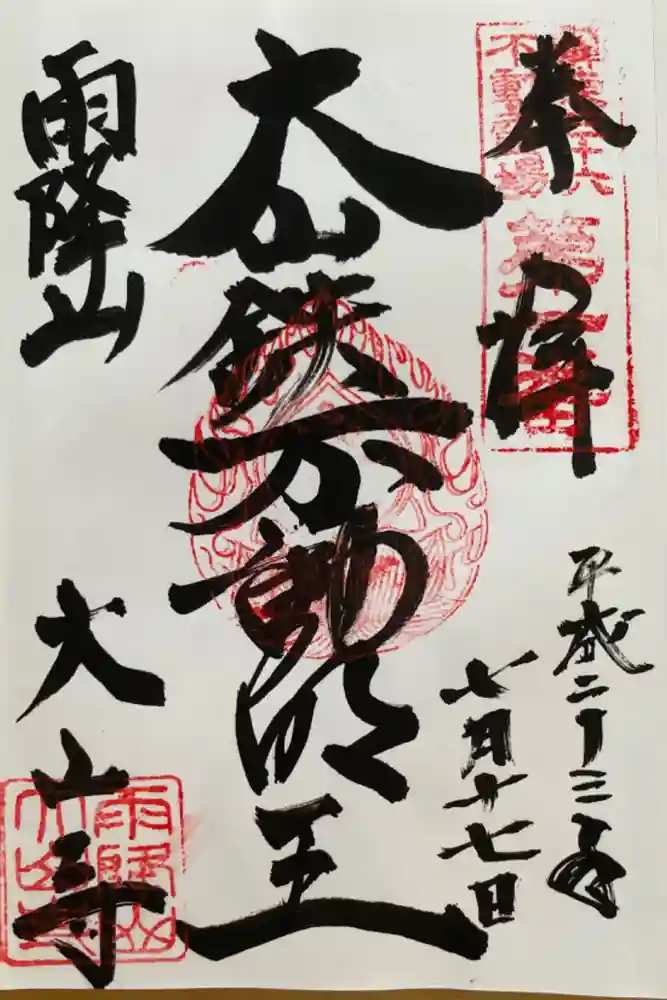 奉拝
関東三十六
不動霊場
第一番
平成二十三年
七月十七日
大山鉄不動明王
雨降山
大山寺
雨降山
大山寺